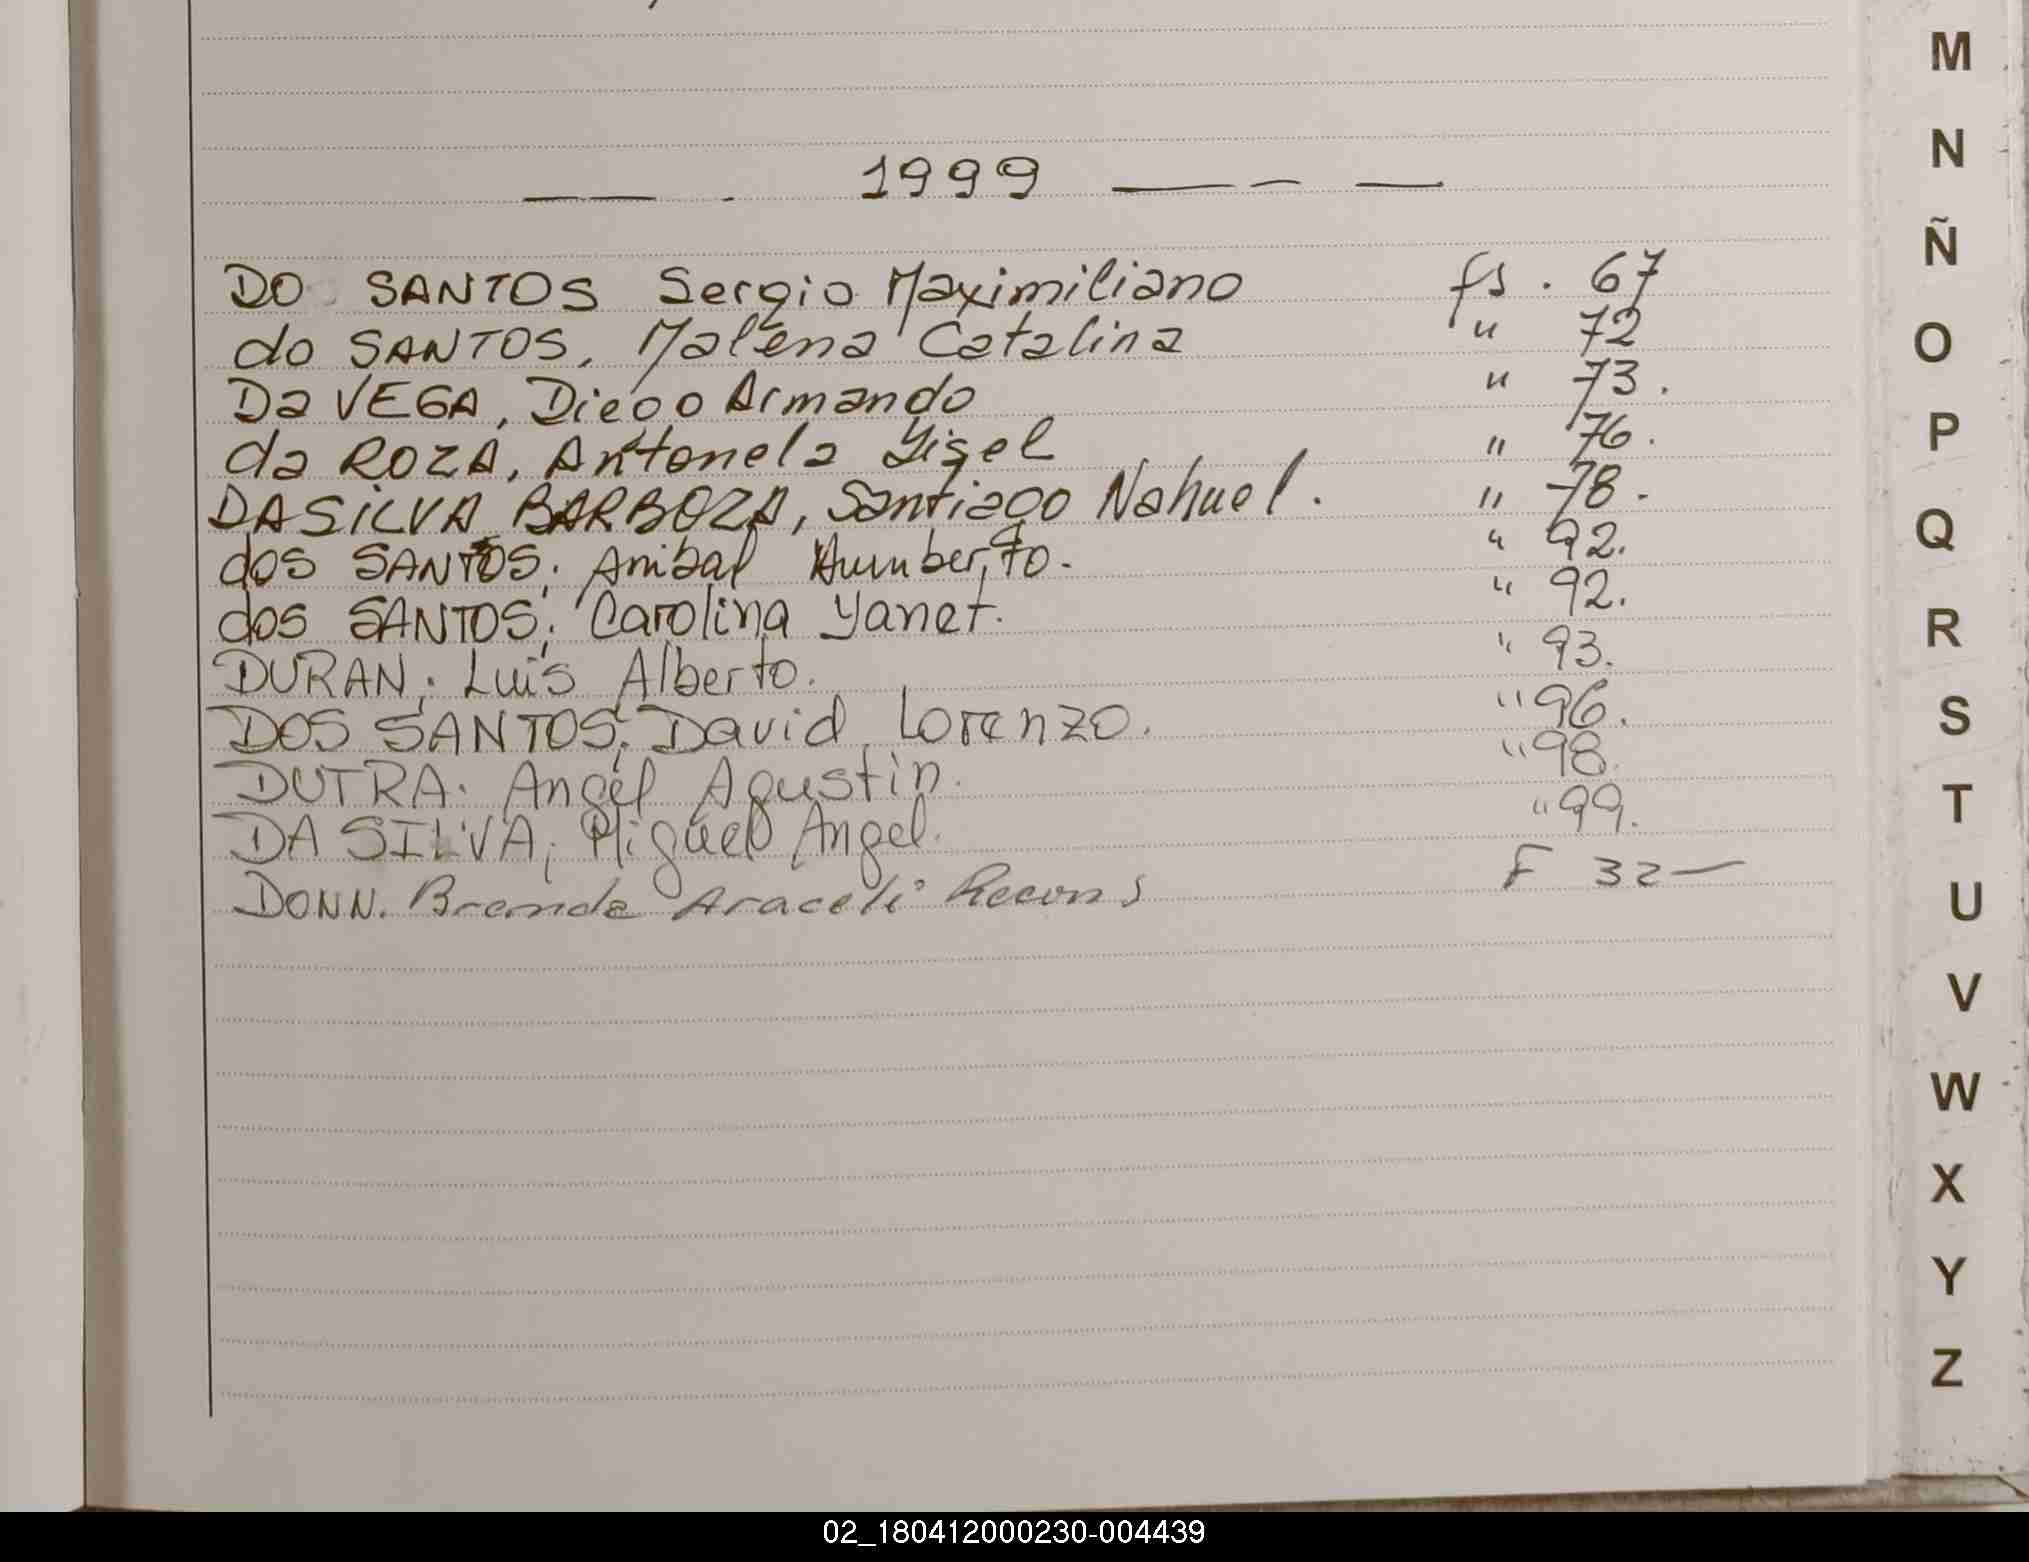 1999
DO SANTOS Sergio Maximiliano fs. 67
do SANTOS, Malena Catalina " 72
Da VEGA, Diego Armando " 73.
da ROZA, Antonela Yisel " 76.
DASILVA BARBOZA, Santiago Nahuel. " 78.
dos SANTOS; Anibal Humberto. " 92.
dos SANTOS; Carolina Yanet. " 92.
DURAN; Luis Alberto. " 93.
DOS SANTOS; David Lorenzo. " 96.
DUTRA; Angel Agustin. " 98.
DA SILVA; Miguel Angel. " 99.
DONN. Brenda Araceli Recons F 32—
M
N
Ñ
O
P
Q
R
S
T
U
V
W
X
Y
Z
02_180412000230-004439